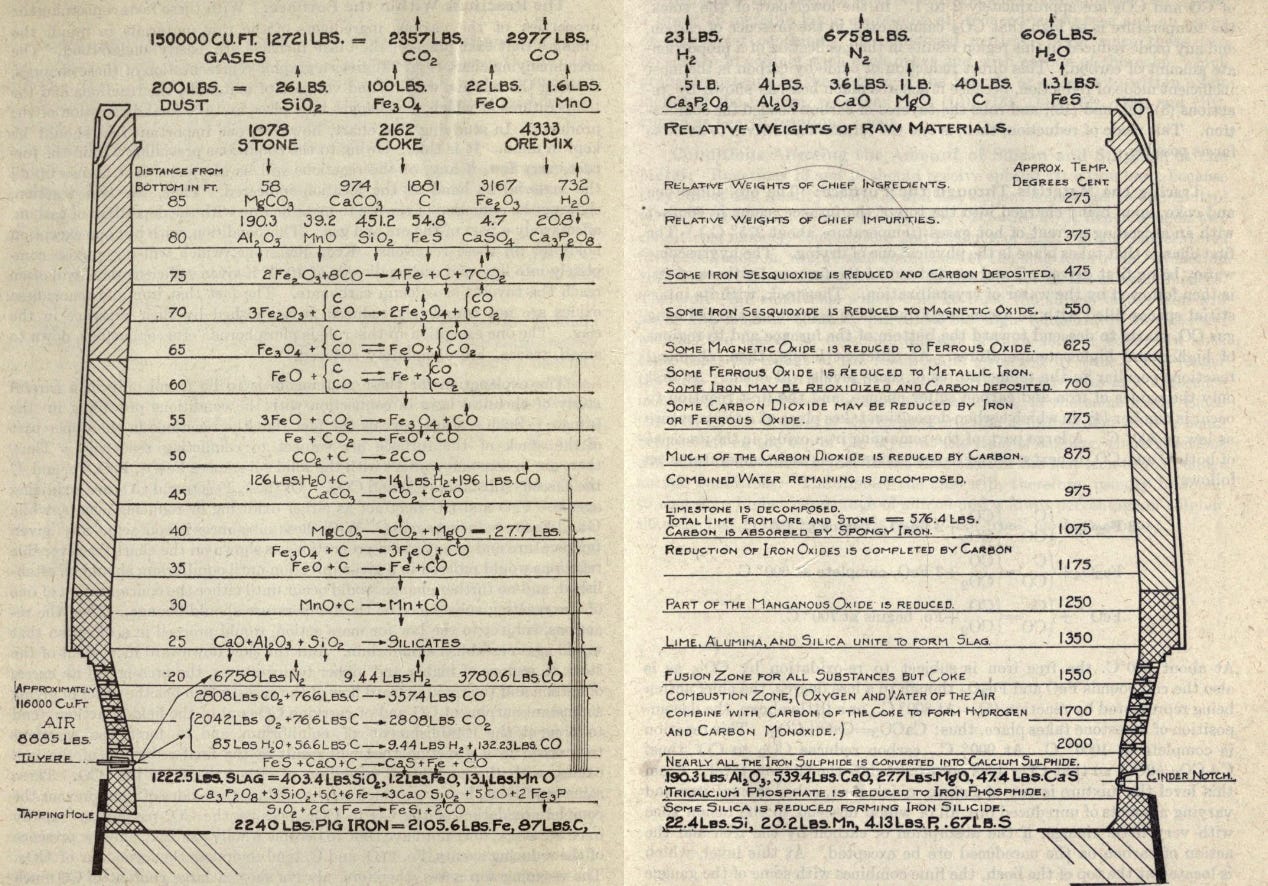 150000 CU.FT. 12721 LBS. = 2357 LBS. 2977 LBS. 23 LBS. 6758 LBS. 606 LBS.
GASES CO2 CO H2 N2 H2O
200 LBS. = 26 LBS. 100 LBS. 22 LBS. 1.6 LBS. .5 LB. 4 LBS. 3.6 LBS. 1 LB. 40 LBS. 1.3 LBS.
DUST SiO2 Fe3O4 FeO MnO Ca3P2O8 Al2O3 CaO MgO C FeS
1078 2162 4333 RELATIVE WEIGHTS OF RAW MATERIALS.
STONE COKE ORE MIX
DISTANCE FROM APPROX. TEMP.
BOTTOM IN FT. 58 974 1881 3167 732 RELATIVE WEIGHTS OF CHIEF INGREDIENTS. DEGREES CENT
85 MgCO3 CaCO3 C Fe2O3 H2O 275
190.3 39.2 451.2 54.8 4.7 20.8 RELATIVE WEIGHTS OF CHIEF IMPURITIES.
80 Al2O3 MnO SiO2 FeS CaSO4 Ca3P2O8 375
75 2Fe2O3+8CO → 4Fe + C + 7CO2 SOME IRON SESQUIOXIDE IS REDUCED AND CARBON DEPOSITED. 475
70 3Fe2O3 + {C CO → 2Fe3O4 + {CO CO2 SOME IRON SESQUIOXIDE IS REDUCED TO MAGNETIC OXIDE. 550
65 Fe3O4 + {C CO ⇌ FeO + {CO CO2 SOME MAGNETIC OXIDE IS REDUCED TO FERROUS OXIDE. 625
60 FeO + {C CO ⇌ Fe + {CO CO2 SOME FERROUS OXIDE IS REDUCED TO METALLIC IRON.
SOME IRON MAY BE REOXIDIZED AND CARBON DEPOSITED. 700
55 3FeO + CO2 → Fe3O4 + CO SOME CARBON DIOXIDE MAY BE REDUCED BY IRON
Fe + CO2 → FeO + CO OR FERROUS OXIDE. 775
50 CO2 + C → 2CO MUCH OF THE CARBON DIOXIDE IS REDUCED BY CARBON. 875
126 LBS.H2O+C → 14 LBS.H2+196 LBS.CO COMBINED WATER REMAINING IS DECOMPOSED.
45 CaCO3 → CO2 + CaO 975
LIMESTONE IS DECOMPOSED.
TOTAL LIME FROM ORE AND STONE = 576.4 LBS.
40 MgCO3 → CO2 + MgO = 27.7 LBS. CARBON IS ABSORBED BY SPONGY IRON. 1075
Fe3O4 + C → 3FeO + CO REDUCTION OF IRON OXIDES IS COMPLETED BY CARBON
35 FeO + C → Fe + CO 1175
30 MnO+C → Mn+CO PART OF THE MANGANOUS OXIDE IS REDUCED. 1250
25 CaO+Al2O3 + SiO2 → SILICATES LIME, ALUMINA, AND SILICA UNITE TO FORM SLAG. 1350
20 6758 LBS N2 9.44 LBS H2 3780.6 LBS.CO. FUSION ZONE FOR ALL SUBSTANCES BUT COKE 1550
APPROXIMATELY 2808 LBS CO2 +766 LBS C → 3574 LBS CO COMBUSTION ZONE, (OXYGEN AND WATER OF THE AIR
116000 CU.FT COMBINE WITH CARBON OF THE COKE TO FORM HYDROGEN 1700
AIR 2042 LBS O2+766 LBS C → 2808 LBS CO2 AND CARBON MONOXIDE.)
8885 LBS. 85 LBS H2O+56.6 LBS C → 9.44 LBS H2 + 132.23 LBS. CO 2000
TUYERE FeS +CaO+C → CaS+Fe + CO NEARLY ALL THE IRON SULPHIDE IS CONVERTED INTO CALCIUM SULPHIDE.
1222.5 LBS. SLAG = 403.4 LBS.SiO2, 1.2 LBS.FeO, 13.1 LBS.MnO 190.3 LBS. Al2O3, 539.4 LBS.CaO, 27.7 LBS.MgO, 47.4 LBS.CaS CINDER NOTCH.
Ca3P2O8+3SiO2+5C+6Fe → 3CaO SiO2 + 5CO+2 Fe3P TRICALCIUM PHOSPHATE IS REDUCED TO IRON PHOSPHIDE.
TAPPING HOLE SiO2 +2C + Fe → FeSi + 2CO SOME SILICA IS REDUCED FORMING IRON SILICIDE.
2240 LBS. PIG IRON = 2105.6 LBS.Fe, 87 LBS.C, 22.4 LBS.Si, 20.2 LBS.Mn, 4.13 LBS.P, .67 LB.S